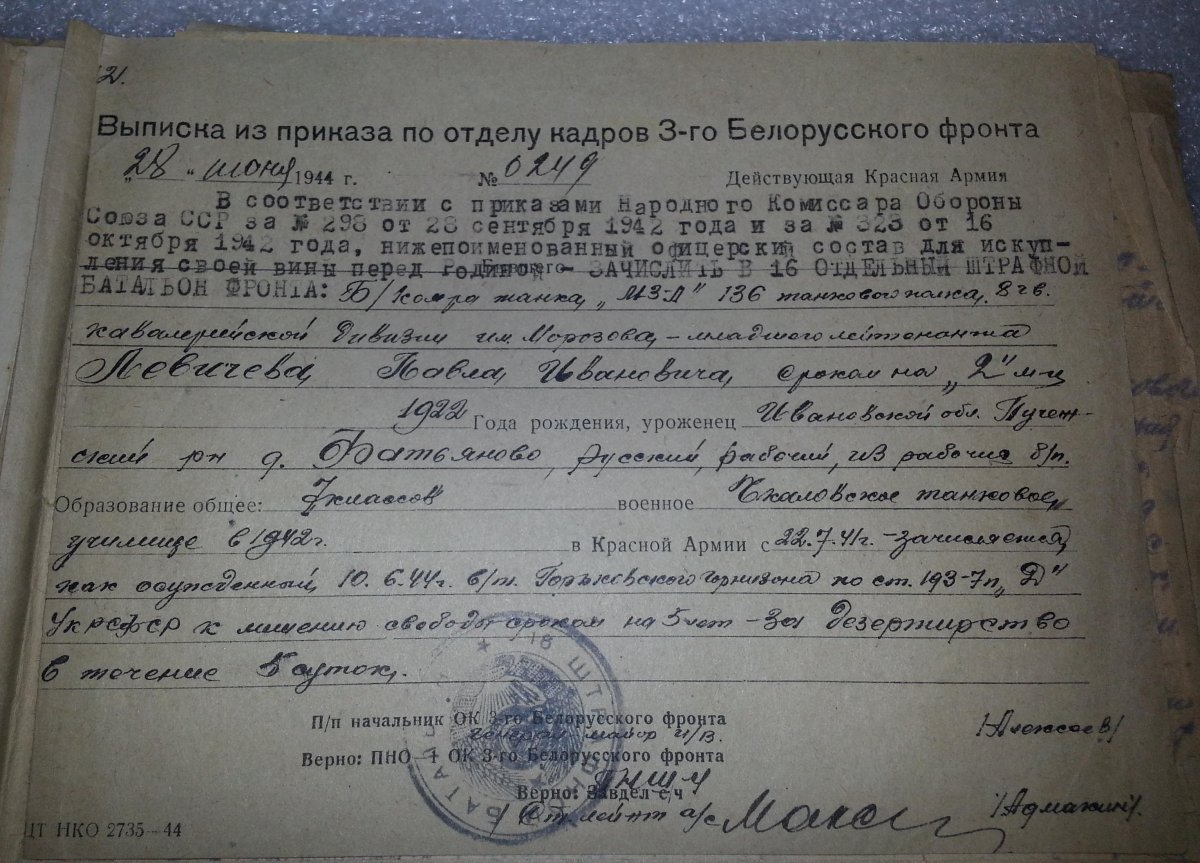 2.
Выписка из приказа по отделу кадров 3-го Белорусского фронта
„28" июня 1944 г. № 0249 Действующая Красная Армия
В соответствии с приказами Народного Комиссара Обороны
Союза ССР за № 298 от 28 сентября 1942 года и за № 323 от 16
октября 1942 года, нижепоименованный офицерский состав для искуп-
ления своей вины перед родиной - ЗАЧИСЛИТЬ В 16 ОТДЕЛЬНЫЙ ШТРАФНОЙ
БАТАЛЬОН ФРОНТА: Б/комра танка „МЗ-Л" 136 танкового полка, 8 гв.
кавалерийской дивизии им. Морозова, - младшего лейтенанта
Левичева, Павла Ивановича, сроком на „2" м-ца
1922 Года рождения, уроженец Ивановской обл. Пучеж-
ский рн д. Фатьяново, русский, рабочий, из рабочих б/п.
Образование общее: 7 классов военное Чкаловское танковое
училище в 1942г. в Красной Армии с 22.7.41г. - зачисляется,
как осужденный 10.6.44г. в/т. Горьковского гарнизона по ст. 193-7 п „Д"
УК РСФСР к лишению свободы сроком на 5 лет - за дезертирство
в течение 5 суток.
П/п начальник ОК 3-го Белорусского фронта
генерал майор и/в. /Алексеев/
Верно: ПНО-1 ОК 3-го Белорусского фронта
ПНШ-4
Верно: Завдел с/ч
/Ст. лейт а/с
16 ШТРАФНОЙ БАТАЛЬОН
ЦТ НКО 2735-44